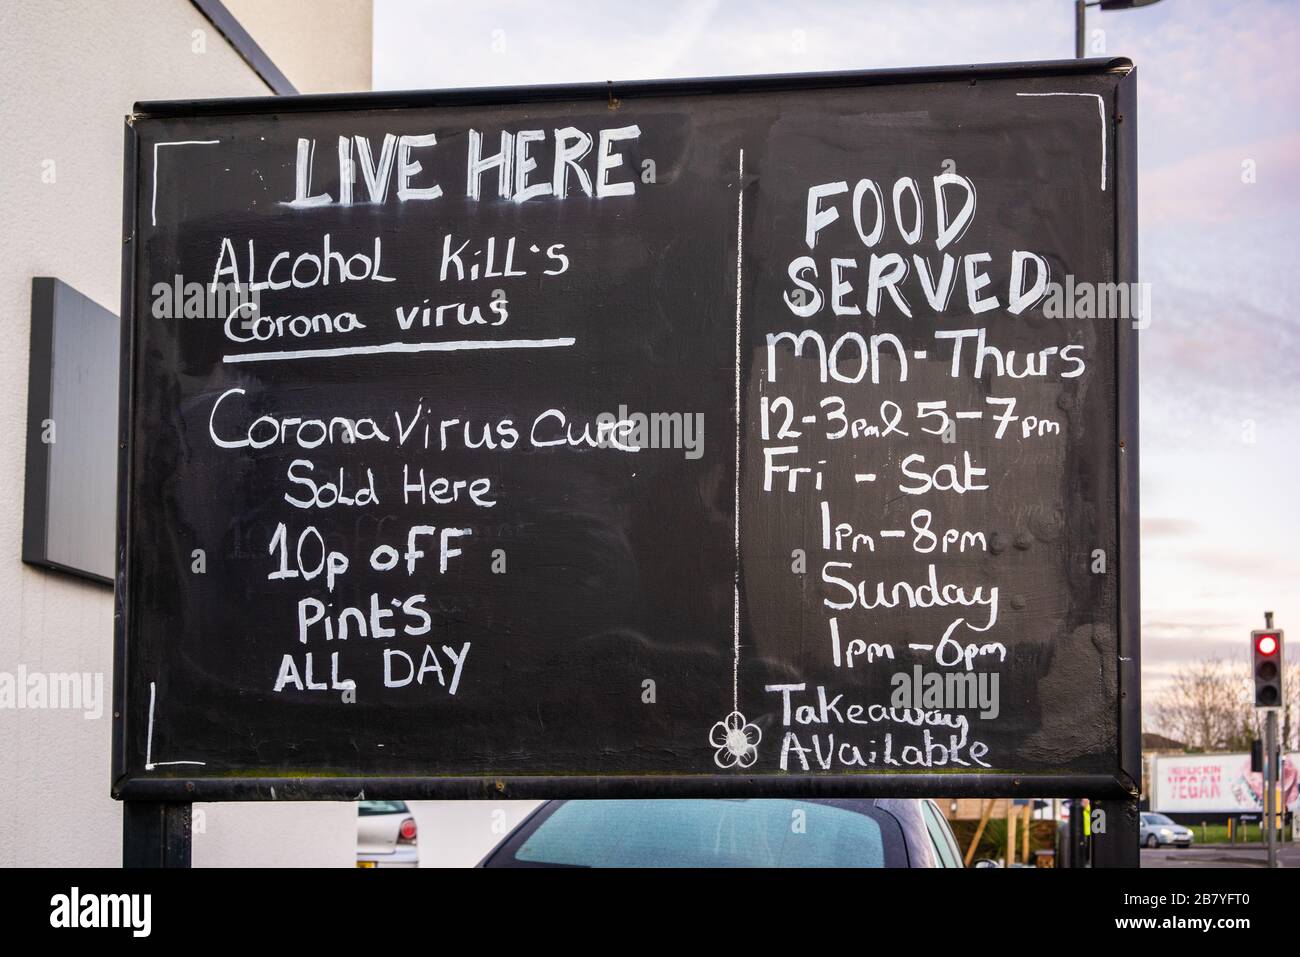 LIVE HERE
ALcohoL KiLL's
Corona virus
Corona Virus Cure
SoLd Here
10p oFF
Pint's
ALL DAY
FOOD
SERVED
MON-Thurs
12-3pm & 5-7pm
Fri - Sat
1pm-8pm
Sunday
1pm-6pm
Takeaway
AVailable
VEGAN
alamy
Image ID: 2B7YFT0
www.alamy.com